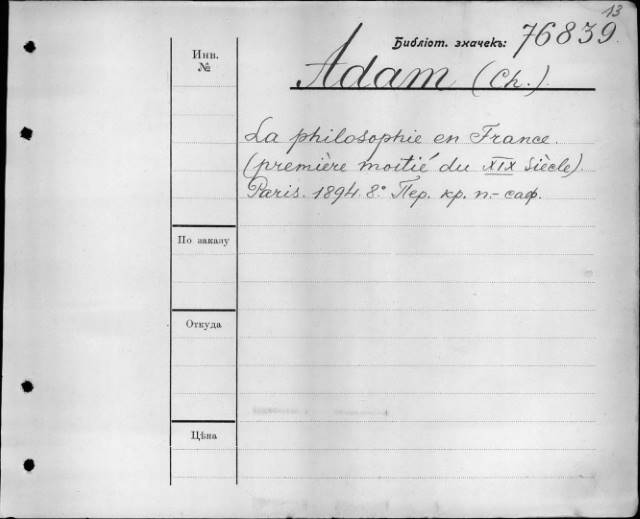 13
Библіот. значекъ: 76839.
Инв. №
Adam (Ch.).
La philosophie en France.
(première moitié du XIX siècle).
Paris. 1894. 8.° Пер. кр. п.-саф.
По заказу
Откуда
Цѣна